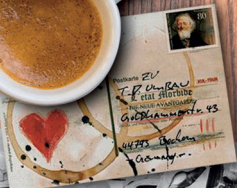 110
Postkarte ZU
T.D. UmBAU
L'etat Morbide
DIE NEUE AVANTGARDE
Goldhammerstr. 43
44793 Bochum
Germany